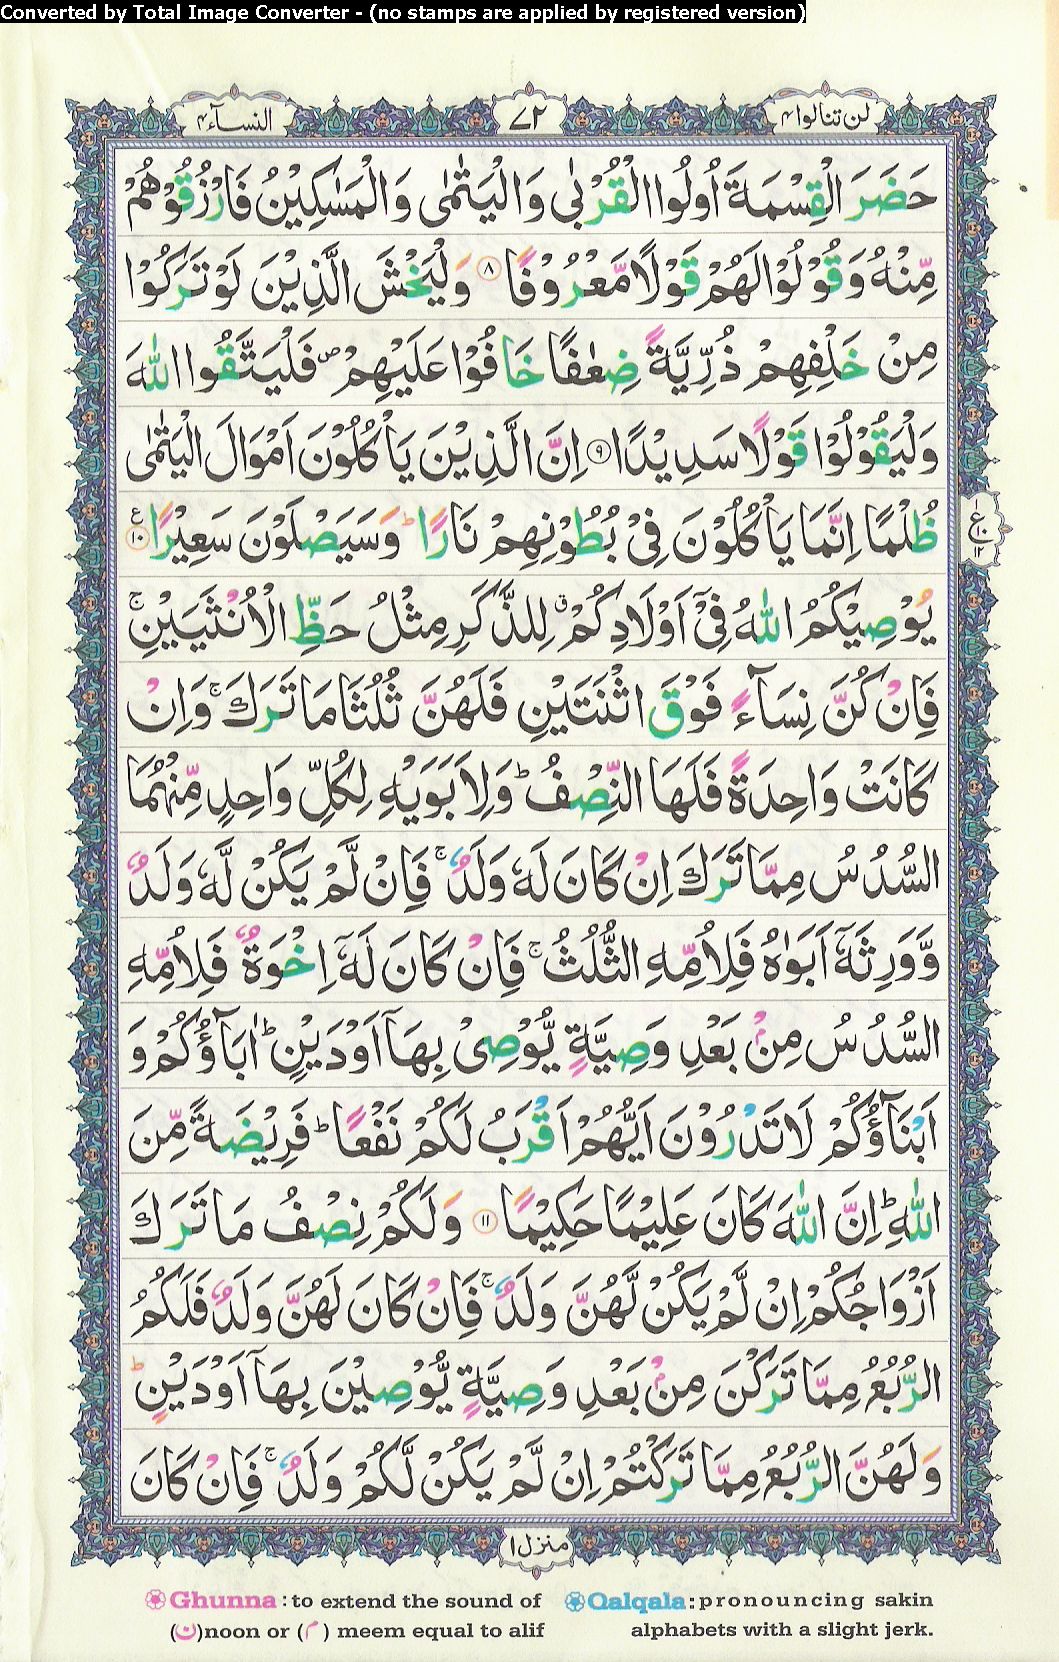 Converted by Total Image Converter - (no stamps are applied by registered version)
لن تنالوا ۴ ۷۲ النسآء ۴
حَضَرَ الْقِسْمَةَ اُولُوا الْقُرْبٰى وَالْيَتٰمٰى وَالْمَسٰكِيْنُ فَارْزُقُوْهُمْ
مِّنْهُ وَقُوْلُوْا لَهُمْ قَوْلًا مَّعْرُوْفًا ۸ وَلْيَخْشَ الَّذِيْنَ لَوْ تَرَكُوْا
مِنْ خَلْفِهِمْ ذُرِّيَّةً ضِعٰفًا خَافُوْا عَلَيْهِمْ ۖ فَلْيَتَّقُوا اللّٰهَ
وَلْيَقُوْلُوْا قَوْلًا سَدِيْدًا ۹ اِنَّ الَّذِيْنَ يَاْكُلُوْنَ اَمْوَالَ الْيَتٰمٰى
ظُلْمًا اِنَّمَا يَاْكُلُوْنَ فِيْ بُطُوْنِهِمْ نَارًا ؕ وَسَيَصْلَوْنَ سَعِيْرًا ۱۰ ع
ع ۱۰ ۱۲
يُوْصِيْكُمُ اللّٰهُ فِيْٓ اَوْلَادِكُمْ ۗ لِلذَّكَرِ مِثْلُ حَظِّ الْاُنْثَيَيْنِ ۚ
فَاِنْ كُنَّ نِسَآءً فَوْقَ اثْنَتَيْنِ فَلَهُنَّ ثُلُثَا مَا تَرَكَ ۚ وَاِنْ
كَانَتْ وَاحِدَةً فَلَهَا النِّصْفُ ؕ وَلِاَبَوَيْهِ لِكُلِّ وَاحِدٍ مِّنْهُمَا
السُّدُسُ مِمَّا تَرَكَ اِنْ كَانَ لَهٗ وَلَدٌ ۚ فَاِنْ لَّمْ يَكُنْ لَّهٗ وَلَدٌ
وَّوَرِثَهٗٓ اَبَوٰهُ فَلِاُمِّهِ الثُّلُثُ ۚ فَاِنْ كَانَ لَهٗٓ اِخْوَةٌ فَلِاُمِّهِ
السُّدُسُ مِنْۢ بَعْدِ وَصِيَّةٍ يُّوْصِيْ بِهَآ اَوْ دَيْنٍ ؕ اٰبَآؤُكُمْ وَ
اَبْنَآؤُكُمْ لَا تَدْرُوْنَ اَيُّهُمْ اَقْرَبُ لَكُمْ نَفْعًا ؕ فَرِيْضَةً مِّنَ
اللّٰهِ ؕ اِنَّ اللّٰهَ كَانَ عَلِيْمًا حَكِيْمًا ۱۱ وَلَكُمْ نِصْفُ مَا تَرَكَ
اَزْوَاجُكُمْ اِنْ لَّمْ يَكُنْ لَّهُنَّ وَلَدٌ ۚ فَاِنْ كَانَ لَهُنَّ وَلَدٌ فَلَكُمُ
الرُّبُعُ مِمَّا تَرَكْنَ مِنْۢ بَعْدِ وَصِيَّةٍ يُّوْصِيْنَ بِهَآ اَوْ دَيْنٍ ؕ
وَلَهُنَّ الرُّبُعُ مِمَّا تَرَكْتُمْ اِنْ لَّمْ يَكُنْ لَّكُمْ وَلَدٌ ۚ فَاِنْ كَانَ
منزل ۱
Ghunna: to extend the sound of
(ن)noon or (م) meem equal to alif
Qalqala: pronouncing sakin
alphabets with a slight jerk.